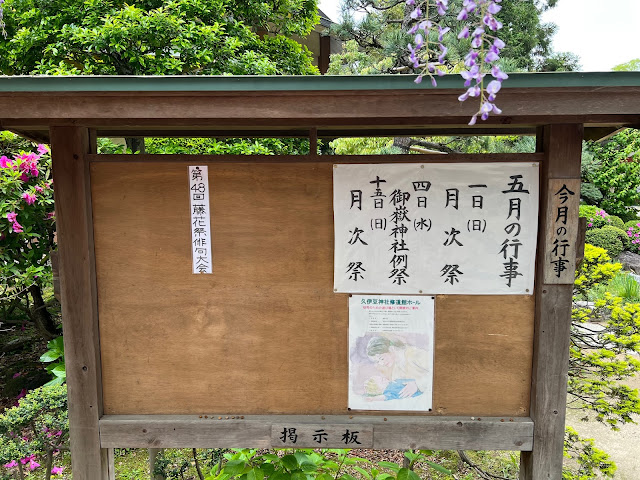 今月の行事
五月の行事
一日(日)
月次祭
四日(水)
御嶽神社例祭
十五日(日)
月次祭
第48回 藤花祭俳句大会
久伊豆神社修道館ホール
掲示板